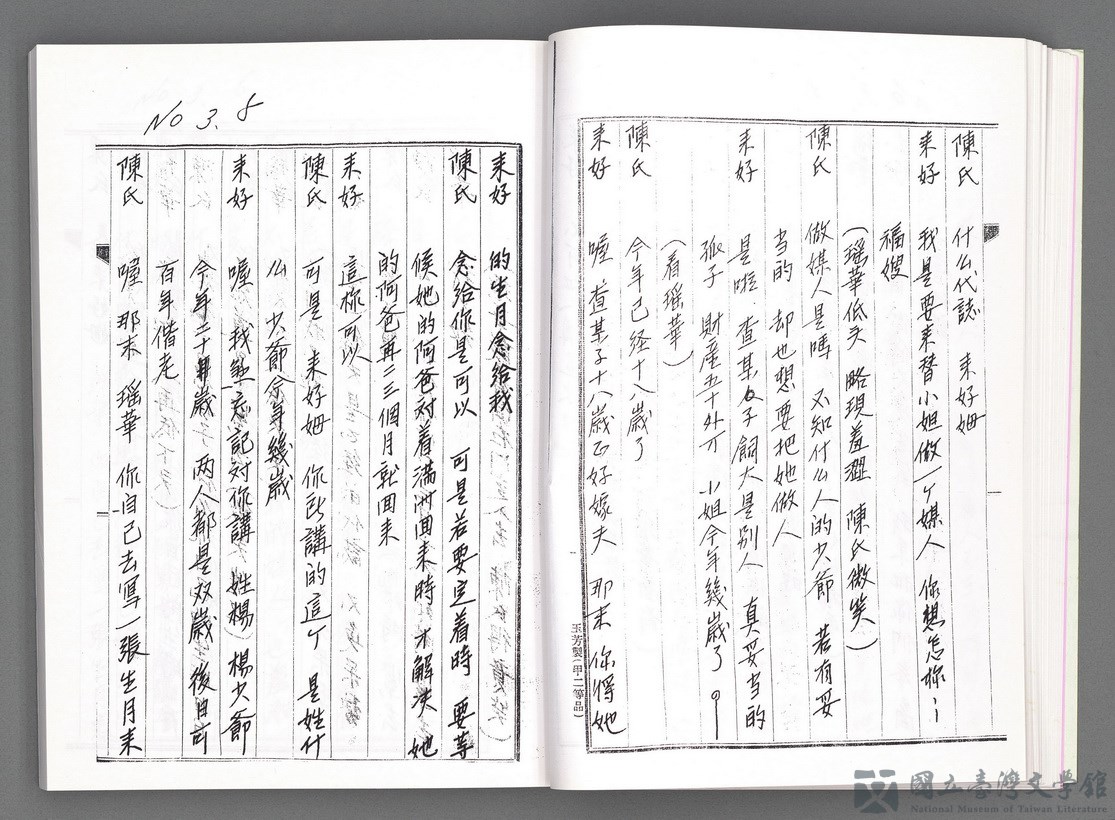 陳氏 什么代誌 来好姆
来好 我是要来替小姐做一个媒人 你想怎你
福嫂
(瑶華低头 略現羞澀 陳氏微笑)
陳氏 做媒人是嗎 不知什么人的少爺 若有妥
当的 却也想要把她做人
来好 是啦 查某子飼大是別人 真妥当的
孤子 財產五十外万 小姐今年幾歲了
(看瑶華)
陳氏 今年已经十八歲了
来好 喔 查某子十八歲正好嫁夫 那末 你將她
玉芳製(甲二等品)
No 3.8
来好 的生月念給我
陳氏 念給你是可以 可是若要定着時 要等
候她的阿爸对着滿洲回来時 才解决 她
的阿爸再二三個月就回来
来好 這樣可以
陳氏 可是 来好姆 你所講的這个 是姓什
么 少爺今年幾歲
来好 喔 我煞忘記对你講 姓楊 楊少爺
今年二十歲 两人都是双歲 後日可
百年偕老
陳氏 喔 那末 瑶華 你自己去寫一張生月来
國立臺灣文學館
National Museum of Taiwan Literature